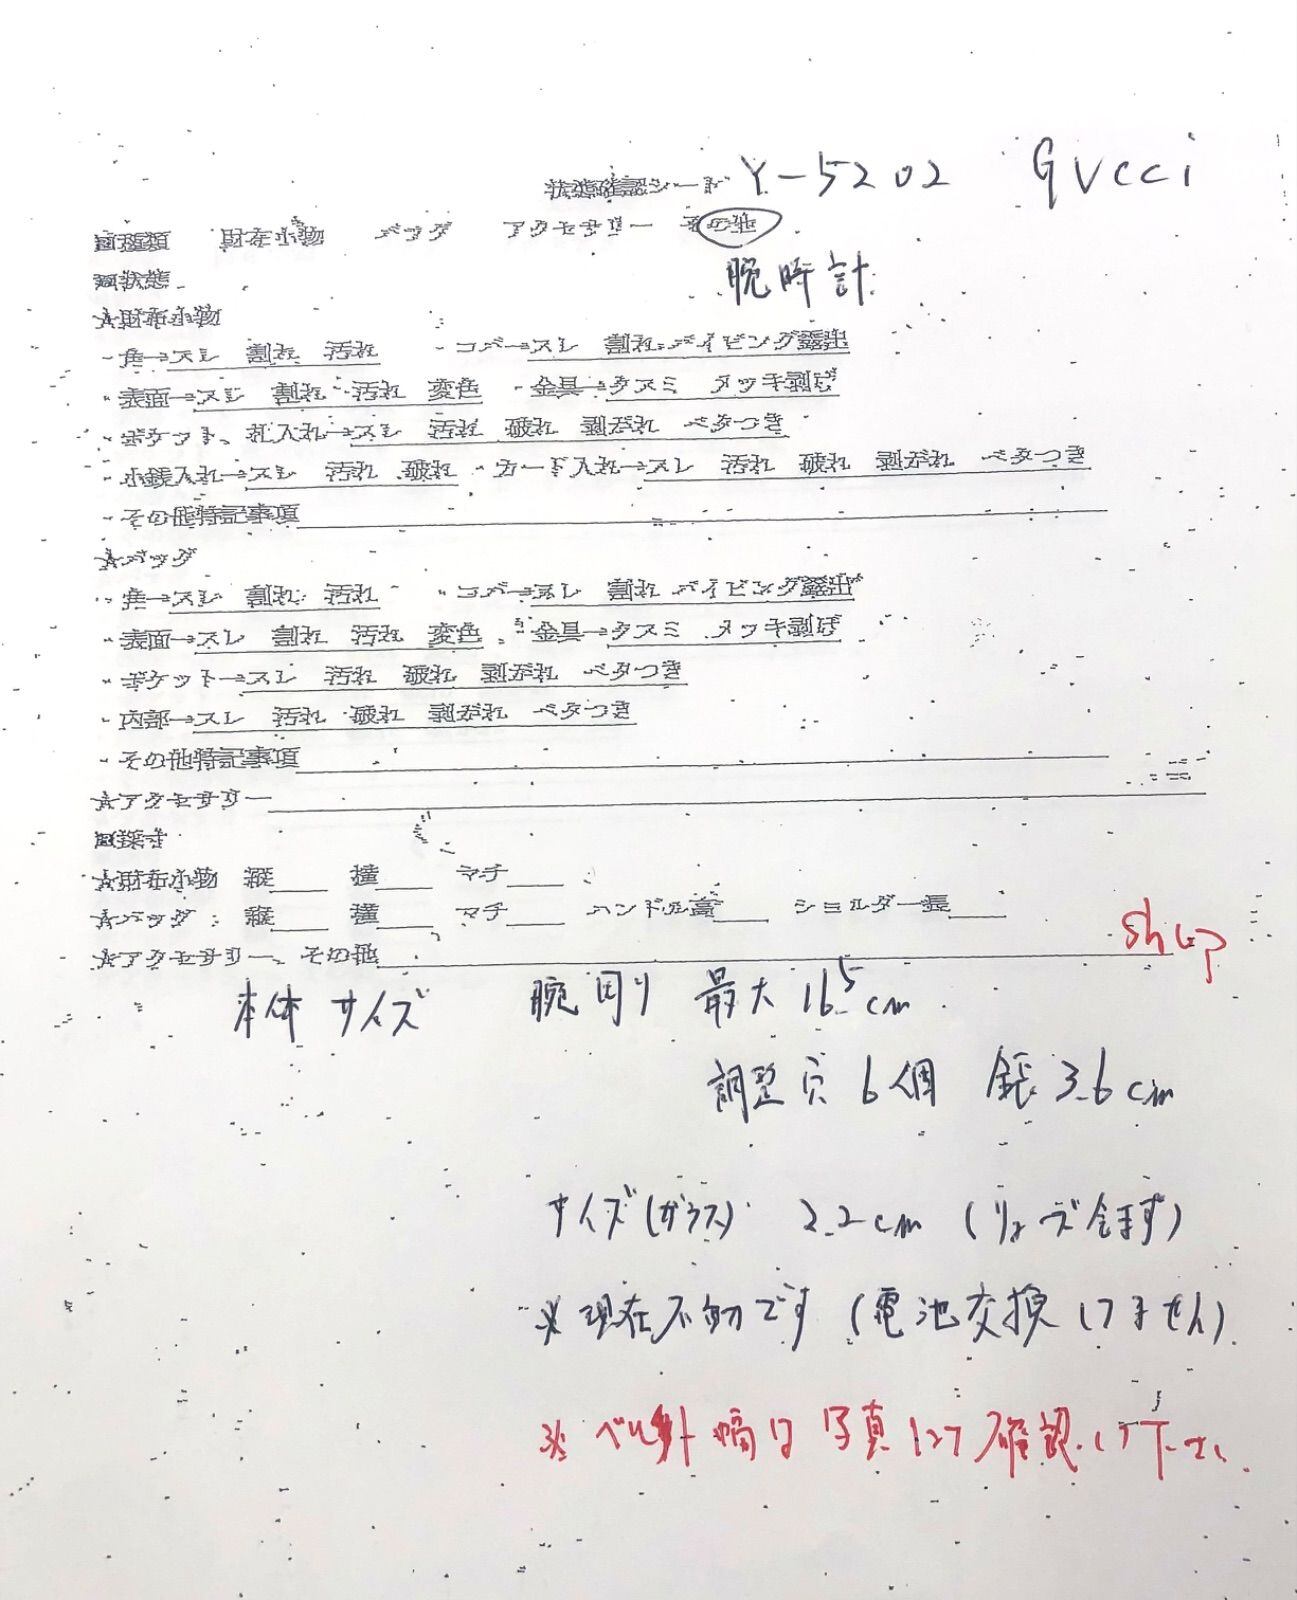 状態確認シート Y-5202 GUCCI
■種類 財布小物 バッグ アクセサリー その他
腕時計
■状態
☆財布小物
・角→スレ 割れ 汚れ ・コバ→スレ 割れ パイピング露出
・表面→スレ 割れ 汚れ 変色 ・金具→クスミ メッキ剥げ
・ポケット、札入れ→スレ 汚れ 破れ 剥がれ ベタつき
・小銭入れ→スレ 汚れ 破れ ・カード入れ→スレ 汚れ 破れ 剥がれ ベタつき
・その他特記事項
☆バッグ
・角→スレ 割れ 汚れ ・コバ→スレ 割れ パイピング露出
・表面→スレ 割れ 汚れ 変色 ・金具→クスミ メッキ剥げ
・ポケット→スレ 汚れ 破れ 剥がれ ベタつき
・内部→スレ 汚れ 破れ 剥がれ ベタつき
・その他特記事項
☆アクセサリー
■採寸
☆財布小物 縦 横 マチ
☆バッグ 縦 横 マチ ハンドル高 ショルダー長
☆アクセサリー、その他
本体サイズ 腕周り 最大 16.5cm
調整穴 6個 3.6cm
サイズ(ガラス) 2.2cm (リューズ含ます)
※現在不動です (電池交換してません)
※ベルト幅は写真にて確認して下さい